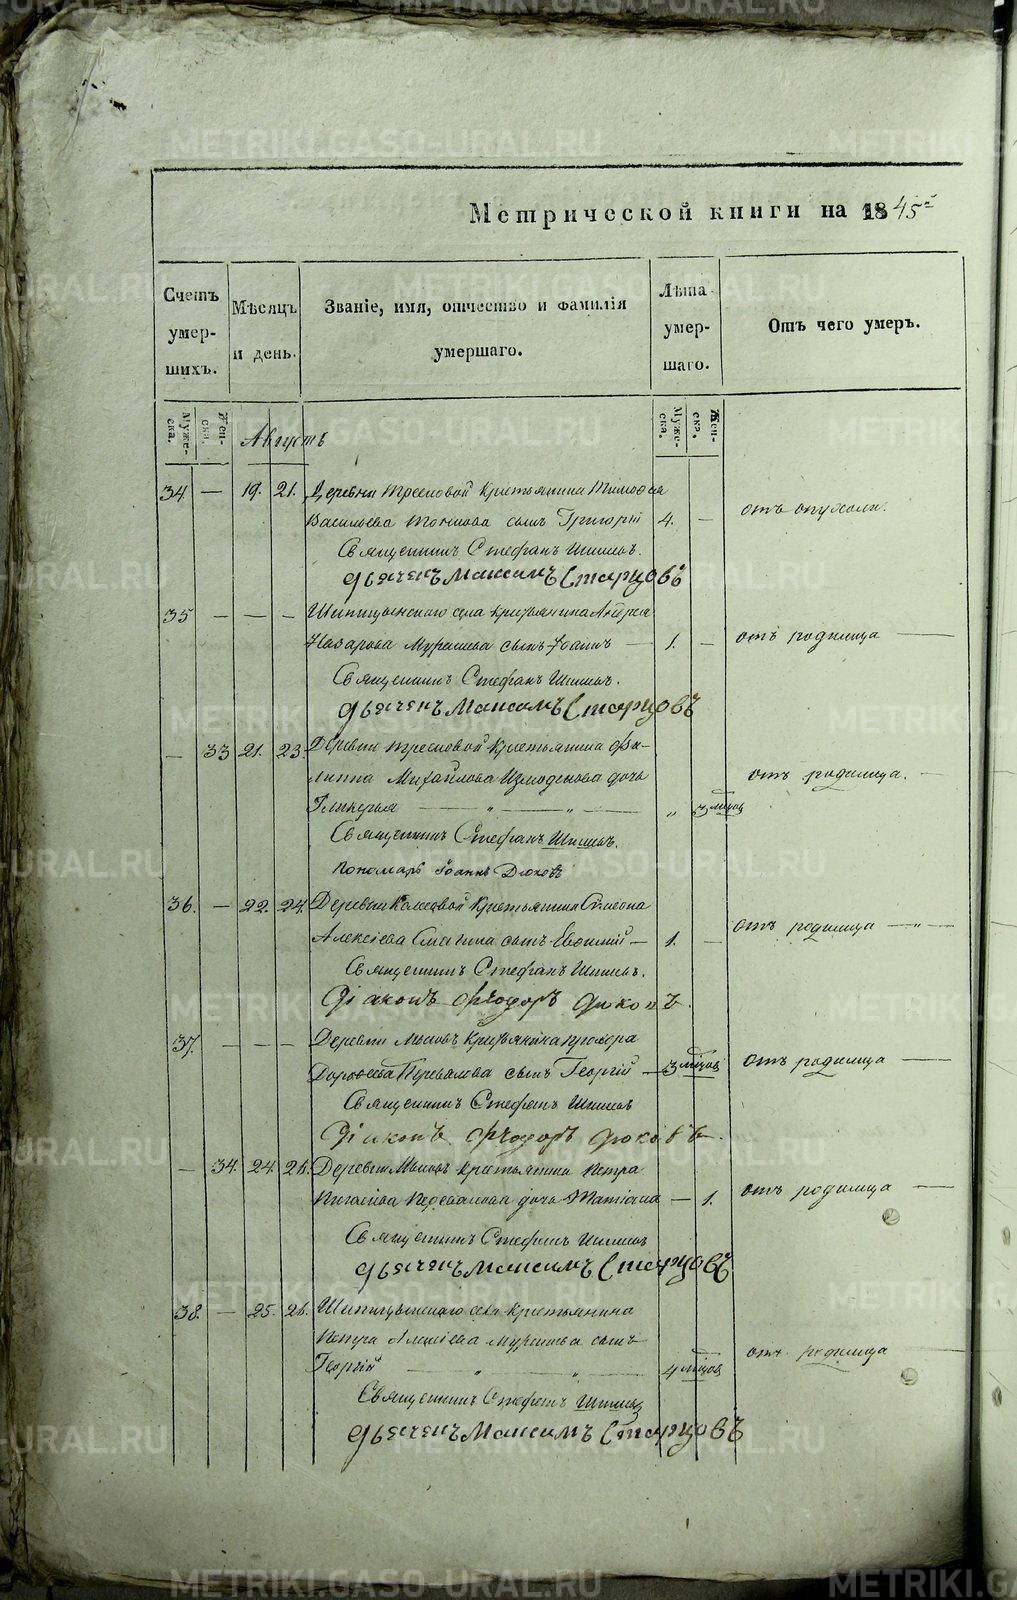 Метрической книги на 1845й
Счетъ умершихъ.
Мѣсяцъ и день.
Званіе, имя, отчество и фамилія умершаго.
Лѣта умершаго.
Отъ чего умеръ.
Мужеска.
Женска.
Августъ
Мужеска.
Женска.
34 — 19. 21. Деревни Крестьянина Тимофея
Васильева сынъ Григорій 4. — отъ опухоли.
Священникъ Стефанъ Шишевъ.
Дьячекъ Максимъ Старцовъ
35 — — — Шипицынскаго села Крестьянина Андрея
Назарова сынъ Іоаннъ — 1. — отъ родимца —
Священникъ Стефанъ Шишевъ.
Дьячекъ Максимъ Старцовъ
— 33 21. 23. Деревни Крестьянина Фи-
липпа Михайлова Измоденова дочь отъ родимца. —
Гликерья — „ — „ — „ 3 мѣсяц
Священникъ Стефанъ Шишевъ.
Пономарь Іоаннъ Дюковъ
36. — 22. 24. Деревни Крестьянина Симеона
Алексіева сынъ Евѳимій — 1. — отъ родимца — „ —
Священникъ Стефанъ Шишевъ.
Діаконъ Ѳеодоръ Дюковъ.
37. — — — Деревни Мысовъ Крестьянина
Дороѳеева Перевалова сынъ Георгій — 3 мѣсяц отъ родимца —
Священникъ Стефанъ Шишевъ
Діаконъ Ѳеодоръ Дюковъ.
— 34. 24. 26. Деревни Мысовъ Крестьянина Петра
Перевалова дочь — 1. отъ родимца —
Священникъ Стефанъ Шишевъ
Дьячекъ Максимъ Старцовъ
38. — 25. 26. Шипицынскаго села Крестьянина
Петра Алексіева сынъ
Георгій — „ — „ — 4 мѣсяц отъ родимца —
Священникъ Стефанъ Шишевъ
Дьячекъ Максимъ Старцовъ
METRIKI.GASO-URAL.RU